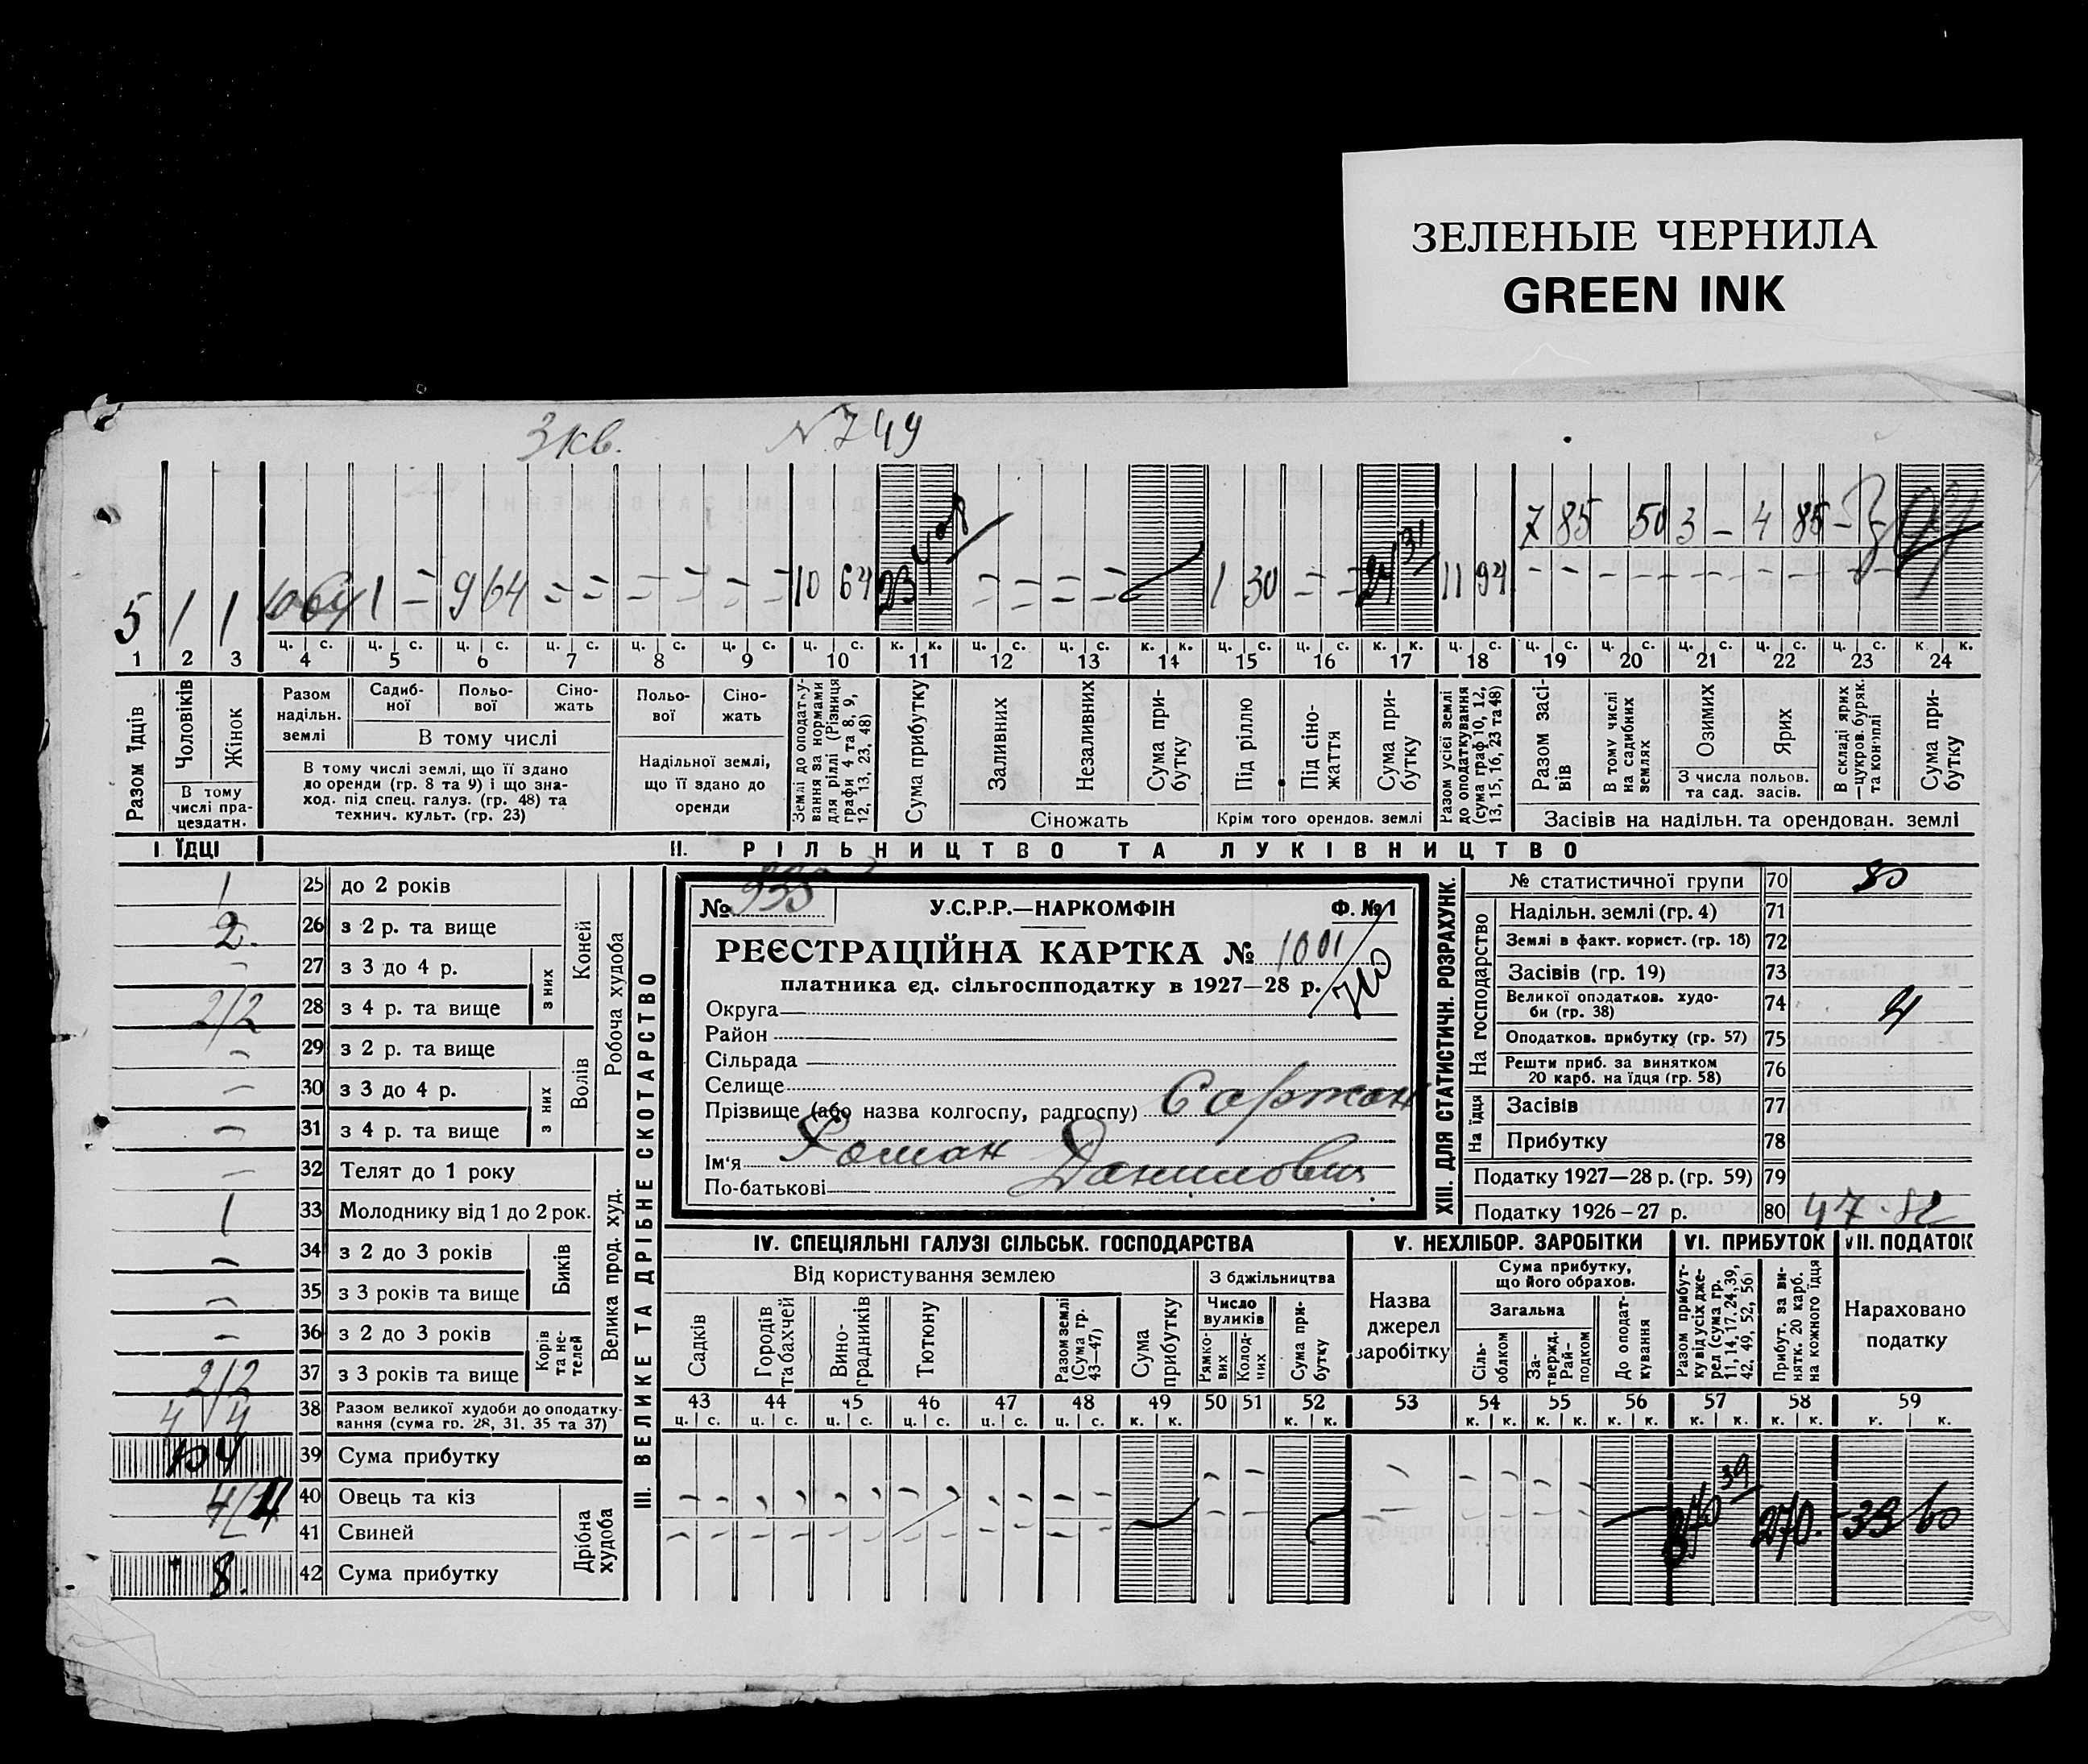 ЗЕЛЕНЫЕ ЧЕРНИЛА
GREEN INK
3 кв. N 749
7 85 50 3 – 4 85 –
5 1 1 10 64 1 = 9 64 = = = = = = 10 64 23 = = = = 1 30 = = 31 11 94
ц. с. ц. с. ц. с. ц. с. ц. с. ц. с. ц. с. к. к. ц. с. ц. с. к. к. ц. с. ц. с. к. к. ц. с. ц. с. ц. с. ц. с. ц. с. ц. с. к. к.
1 2 3 4 5 6 7 8 9 10 11 12 13 14 15 16 17 18 19 20 21 22 23 24
Разом їдців
Чоловіків
Жінок
В тому числі працездатн.
Разом надільн. землі
Садибної
Польової
Сіножать
В тому числі
В тому числі землі, що її здано до оренди (гр. 8 та 9) і що знаход. під спец. галуз. (гр. 48) та технич. культ. (гр. 23)
Польової
Сіножать
Надільної землі, що її здано до оренди
Землі до оподаткування за нормами для ріллі (Різниця графи 4 та 8, 9, 12, 13, 23, 48)
Сума прибутку
Заливних
Незаливних
Сума прибутку
Сіножать
Під ріллю
Під сіножаття
Сума прибутку
Крім того орендов. землі
Разом усієї землі до оподаткування (сума граф 10, 12, 13, 15, 16, 23 та 48)
Разом засівів
В тому числі на садибних землях
Озимих
Ярих
З числа польов. та сад. засів.
В складі ярих —цукров. буряк. та конопли
Сума прибутку
Засівів на надільн. та орендован. землі
I ЇДЦІ
II. РІЛЬНИЦТВО ТА ЛУКІВНИЦТВО
1 25 до 2 років
2. 26 з 2 р. та вище
– 27 з 3 до 4 р.
2/2 28 з 4 р. та вище
з них
Коней
– 29 з 2 р. та вище
– 30 з 3 до 4 р.
– 31 з 4 р. та вище
з них
Волів
Робоча худоба
– 32 Телят до 1 року
1 33 Молоднику від 1 до 2 рок.
– 34 з 2 до 3 років
– 35 з 3 років та вище
Биків
– 36 з 2 до 3 років
2/2 37 з 3 років та вище
Корів та нетелей
Велика прод. худ.
4 4 38 Разом великої худоби до оподаткування (сума гр. 28, 31. 35 та 37)
39 Сума прибутку
40 Овець та кіз
41 Свиней
8. 42 Сума прибутку
Дрібна худоба
III. ВЕЛИКЕ ТА ДРІБНЕ СКОТАРСТВО
№ 935 У.С.Р.Р.—НАРКОМФІН Ф. №1
РЕЄСТРАЦІЙНА КАРТКА № 1001
платника єд. сільгоспподатку в 1927—28 р.
Округа
Район
Сільрада
Селище
Прізвище (або назва колгоспу, радгоспу)
Ім'я Роман
По-батькові Данилович
XIII. ДЛЯ СТАТИСТИЧН. РОЗРАХУНК.
№ статистичної групи 70 80
На господарство
Надільн. землі (гр. 4) 71
Землі в факт. корист. (гр. 18) 72
Засівів (гр. 19) 73
Великої оподатков. худоби (гр. 38) 74 4
Оподатков. прибутку (гр. 57) 75
Решти приб. за винятком 20 карб. на їдця (гр. 58) 76
На їдця
Засівів 77
Прибутку 78
Податку 1927—28 р. (гр. 59) 79
Податку 1926–27 р. 80 47
IV. СПЕЦІЯЛЬНІ ГАЛУЗІ СІЛЬСЬК. ГОСПОДАРСТВА
Від користування землею
Садків
Городів та бахчей
Виноградників
Тютюну
Разом землі (Сума гр. 43—47)
Сума прибутку
З бджільництва
Число вуликів
Рамкових
Колодних
Сума прибутку
V. НЕХЛІБОР. ЗАРОБІТКИ
Назва джерел заробітку
Сума прибутку, що його обрахов.
Загальна
Сільоблком
Затвердж. Райподком
До оподаткування
VI. ПРИБУТОК
Разом прибутку від усіх джерел (сума гр. 11, 14, 17, 24, 39, 42, 49, 52, 56)
Прибут. за винятк. 20 карб. на кожного їдця
VII. ПОДАТОК
Нараховано податку
43 44 45 46 47 48 49 50 51 52 53 54 55 56 57 58 59
ц. с. ц. с. ц. с. ц. с. ц. с. ц. с. к. к. к. к. к. к. к. к. к. к. к. к. к. к. к. к.
39 270. 39 60